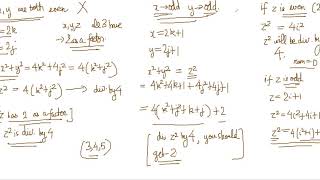 x, y are both even X
x,y,z
=2k
→ 2 as a factor
=2j
x²+y² = 4k²+4j² = 4(k²+j²)
z² = 4(k²+j²) → div. by 4
z has 2 as a factor]
z² is div. by 4
(3,4,5)
x→odd y→odd.
x=2k+1
y=2j+1
x²+y² = z²
= 4k²+4k+1+4j²+4j+1
= 4(k²+j²+k+j)+2
[div z² by 4, you should
get 2]
if z is even
z² = 4i²
z² will be div. by
4.
if z is odd
z = 2i+1
z² = 4i²+4i+1
z² = 4(i²+i)+1